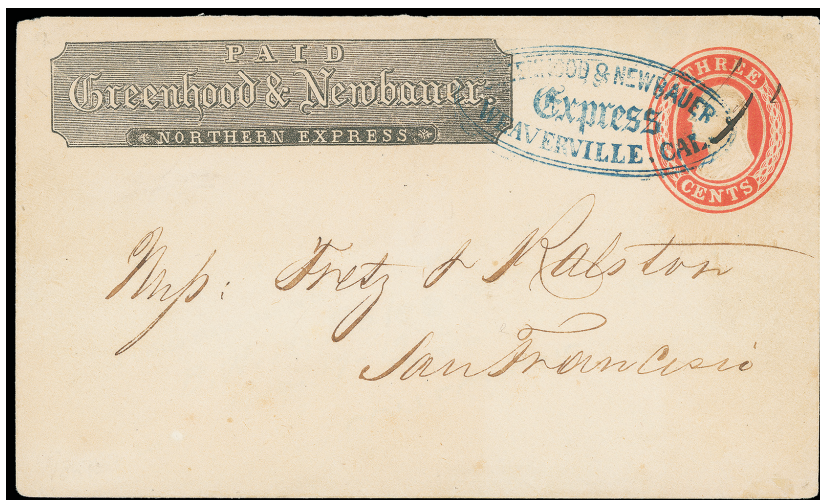 PAID
Greenhood & Newbauer
NORTHERN EXPRESS
& NEWBAUER
Express,
WEAVERVILLE, CAL.
THREE
CENTS
Mess: Fretz & Ralston
San Francisco